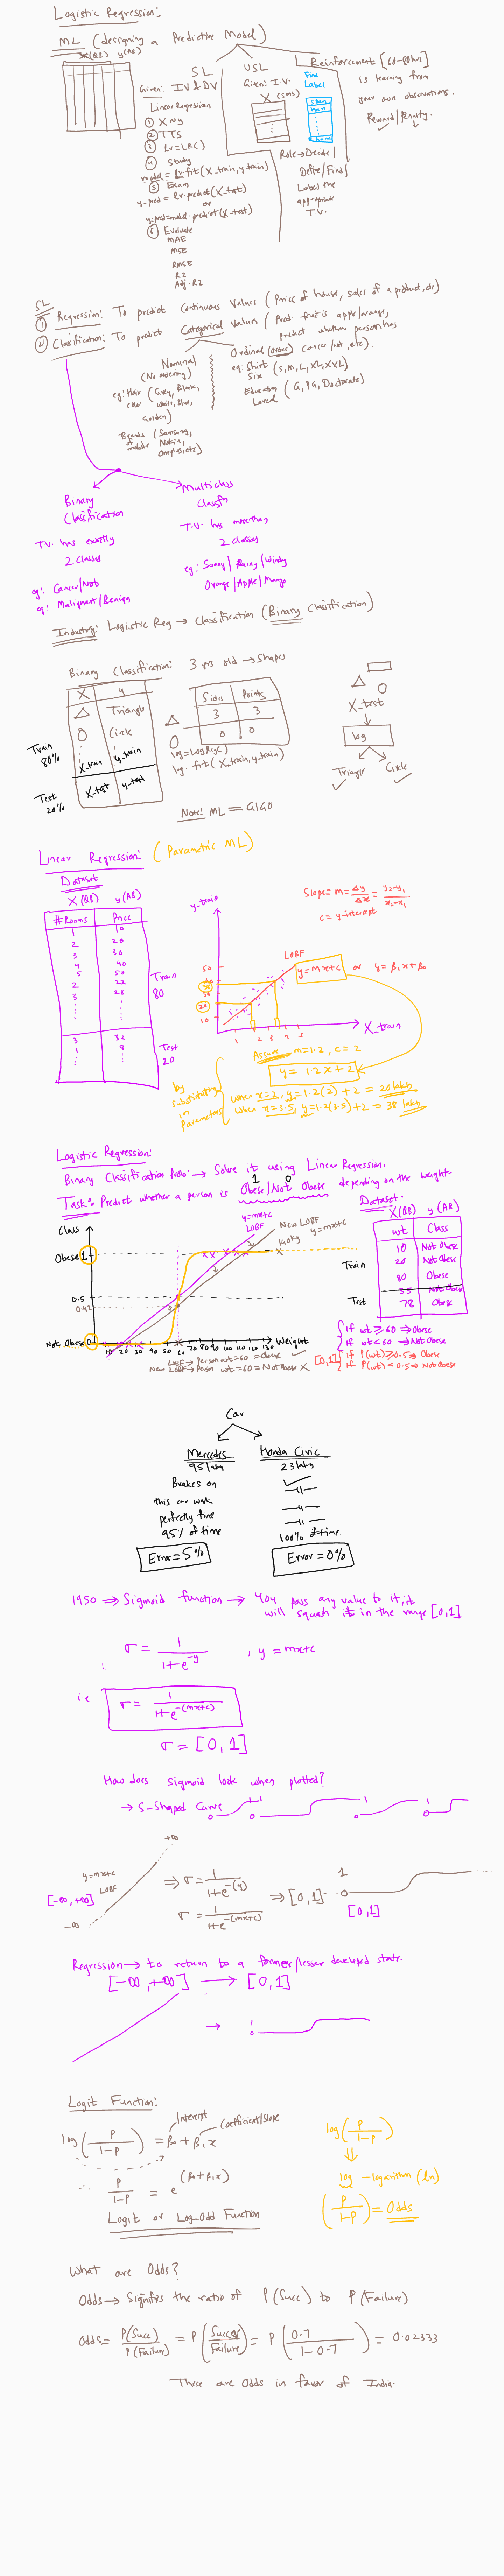 Logistic Regression:
ML (designing a Predictive Model)
X(QB) y(AB)
SL
Given: IV & DV
Linear Regression
① X n y
② TTS
③ lr = LR()
④ Study
model = lr.fit(X_train, y_train)
⑤ Exam
y-pred = lr.predict(X_test)
or
y-pred = model.predict(X_test)
⑥ Evaluate
MAE
MSE
RMSE
R2
Adj. R2
USL
Given: I.V.
X (sms)
Find
Label
spam
ham
Role → Decide/
Define/Find/
Label the
appropriate
T.V.
Reinforcement [60-80hrs]
is learning from
your own observations.
Reward/Penalty.
SL
① Regression: To predict Continuous Values (Price of house, sales of a product, etc)
② Classification: To predict Categorical Values (Pred. fruit is apple/orange,
predict whether person has
cancer/not, etc).
Nominal
(No ordering)
eg: Hair (Grey, Black,
color White, Blue,
Golden)
Brands (Samsung,
of mobile Nokia,
Oneplus, etc)
Ordinal (order)
eg. Shirt (S, M, L, XL, XXL)
Size
Education (G, PG, Doctorate)
Level
Binary
Classification
T.V. has exactly
2 classes
eg: Cancer/Not
eg: Malignant/Benign
Multiclass
Classfn
T.V. has more than
2 classes
eg: Sunny/Rainy/Windy
Orange/Apple/Mango
Industry: Logistic Reg → Classification (Binary Classification)
Binary Classification: 3 yrs old → Shapes
X y
Triangle
Circle
Train
80%
X_train y_train
Test
20%
X_test y_test
Sides Points
3 3
0 0
log = LogReg()
log.fit(X_train, y_train)
X_test
log
Triangle Circle
Note: ML == GIGO
Linear Regression: (Parametric ML)
Dataset
X (QB) y(AB)
#Rooms Price
1 10
2 20
3 30
4 40
5 50
2 22
3 28
Train
80
3 32
1 8
Test
20
Slope = m = Δy/Δx = y2-y1/x2-x1
c = y-intercept
y_train
50
10
1 2 3 4 5
X_train
LOBF
y = mx+c or y = β1x + β0
Assume m = 1.2, c = 2
y = 1.2x + 2
by
substituting
in
Parameters
when x=2, y = 1.2(2) + 2 = 20 lakhs
when x=3.5, y = 1.2(3.5) + 2 = 38 lakhs
Logistic Regression:
Binary Classification Prob: → Solve it using Linear Regression.
1 0
Task: Predict whether a person is Obese/Not Obese depending on the weight.
Class
Obese 1
0.5
0.42
Not Obese 0
10 20 30 40 50 60 70 80 90 100 110 120 130
Weight
y=mx+c
LOBF
New LOBF y=mx+c
140kg
LOBF → Person wt=60 = Obese
New LOBF → Person wt=60 = Not Obese X
Dataset.
X(QB) y (AB)
wt Class
10 Not Obese
20 Not Obese
80 Obese
35 Not Obese
78 Obese
Train
Test
if wt ≥ 60 ⇒ Obese
if wt < 60 ⇒ Not Obese
[0,1] if P(wt) ≥ 0.5 ⇒ Obese
if P(wt) < 0.5 ⇒ Not Obese
Car
Mercedes
95 lakhs
Brakes on
this car work
perfectly fine
95% of time
Error = 5%
Honda Civic
23 lakhs
100% of time.
Error = 0%
1950 ⇒ Sigmoid function → You pass any value to it, it
will squash it in the range [0,1]
σ = 1/1+e^-y , y = mx+c
i.e. σ = 1/1+e^-(mx+c)
σ = [0,1]
How does sigmoid look when plotted?
→ S-Shaped Curve
+∞
y=mx+c
LOBF
[-∞, +∞]
-∞
⇒ σ = 1/1+e^-(y)
σ = 1/1+e^-(mx+c)
⇒ [0,1]
1
0
[0,1]
Regression → to return to a former/lesser developed state.
[-∞, +∞] → [0,1]
→ 1
0
Logit Function:
log(P/1-P) = β0 + β1x
Intercept
Coefficient/Slope
P/1-P = e^(β0+β1x)
Logit or Log-Odd Function
log(P/1-P)
log → logarithm (ln)
(P/1-P) = Odds
What are Odds?
Odds → Signifies the ratio of P(Succ) to P(Failure)
Odds = P(Succ)/P(Failure) = P(Success/Failure) = P(0.7/1-0.7) = 0.02333
These are Odds in favor of India.